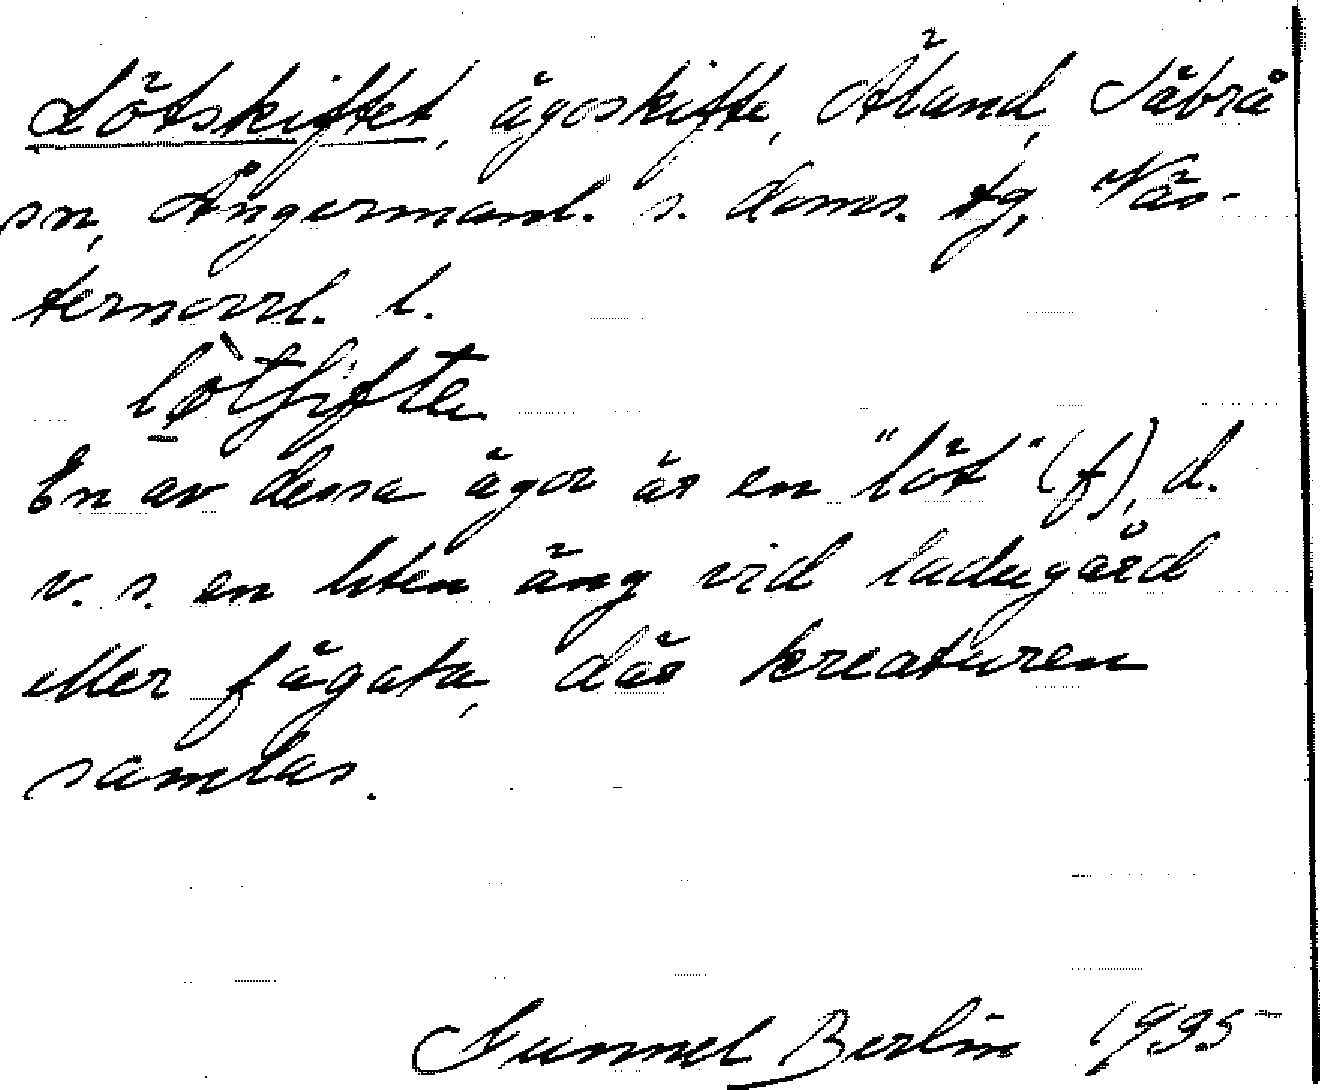 Lötskiftet, ägoskifte, Äland, Säbrå
sn, Ångermanl. s. doms. tg, Väs-
ternorrl. l.
En av dessa ägor är en "löt" (f), d.
v. s. en liten äng vid ladugård
eller fägata, där kreaturen
samlas.
Gunnel Berlin 1935